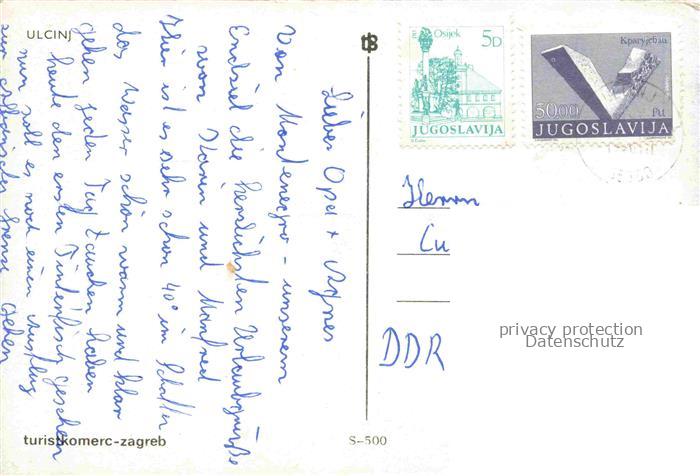 ULCINJ
Lieber Opa + Agnes
Von Montenegro - unserem
Endziel die herzlichsten Urlaubsgrüße
von Karin und Manfred
Hier ist es sehr schon 40° im Schatten
das Wasser schön warm und klar
gehen jeden Tag tauchen haben
heute den ersten Tintenfisch gesehen
nun soll es noch einen Ausflug
zur albanischen Grenze gehen
turistkomerc-zagreb
S-500
Osijek
5D
JUGOSLAVIJA
Крагујевац
50.00
JUGOSLAVIJA
Herrn
Cu
DDR
privacy protection
Datenschutz